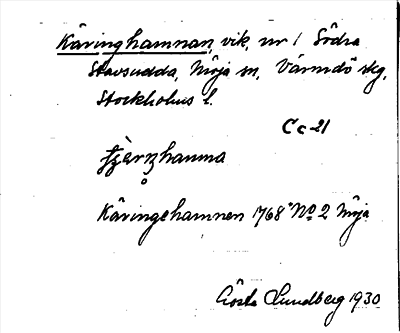 Käringhamnan, vik, nr 1 Södra
Stavsudda, Möja sn, Värmdö skg,
Stockholms l.
Cc-21
Käringehamnen 1768 No 2 Möja
Gösta Lundberg 1930